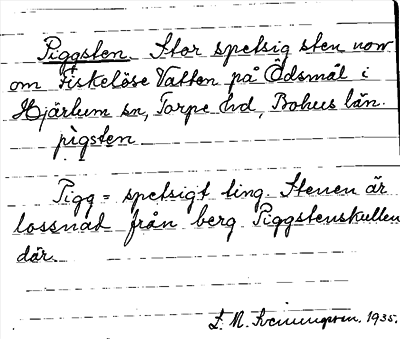 Piggsten. Stor spetsig sten norr
om Fiskelöse Vatten på Ödsmål i
Hjärtum sn, Torpe hd, Bohus län.
pigsten
Pigg = spetsigt ting. Stenen är
lossnad från berg Piggstenskullen
där.
1935.